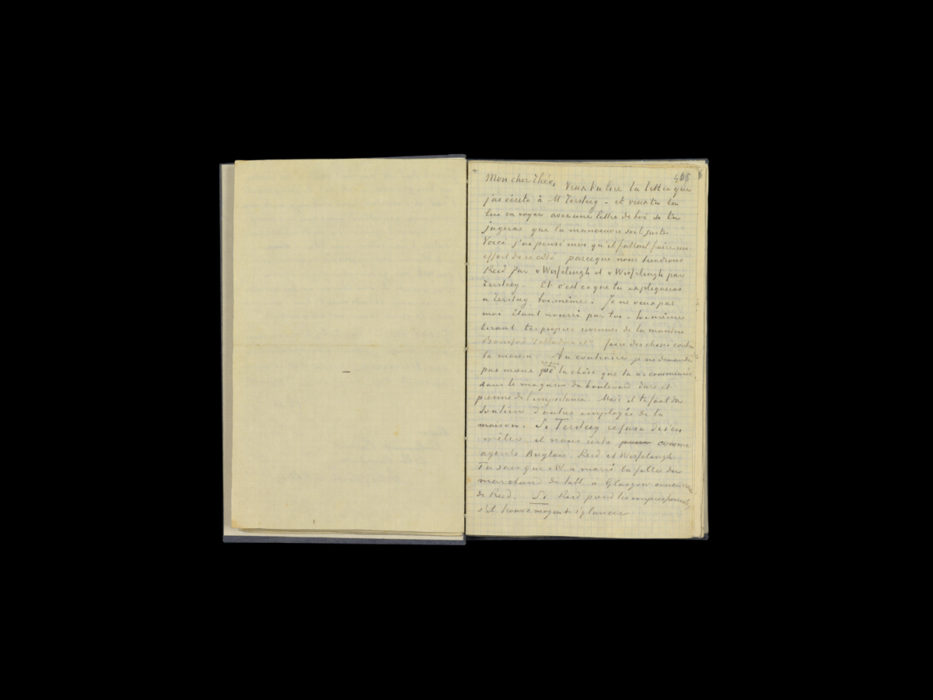 468
Mon cher Theo, Veux tu lire la lettre que
j'ai écrite à M. Tersteeg – et veux tu la
lui envoyer avec une lettre de toi si tu
jugeras que la manoeuvre soit juste.
Voici j'ai pensé moi qu'il fallait faire un
effort de ce côté parceque nous tiendrons
Reid par v Wisselingh et v Wisselingh par
Tersteeg. Et c'est ce que tu expliqueras
à Tersteeg toi-même. Je ne veux pas
moi étant nourri par toi – toi-même
tirant tes propres revenus de la maison
Boussod Valladon & Cie faire des choses contre
la maison. Au contraire je ne demande
pas mieux que la chose que tu as commencée
dans le magasin du boulevard dure et
prenne de l'importance. Mais il te faut du
soutien d'autres employés de la
maison. Si Tersteeg refuse de s'en
mêler, il nous reste comme
agents Anglais. Reid et Wisselingh
Tu sais que W. a marié la fille du
marchand de tabl. à Glasgow
de Reid. Si Reid prend les impressionnistes
s'il trouve moyen